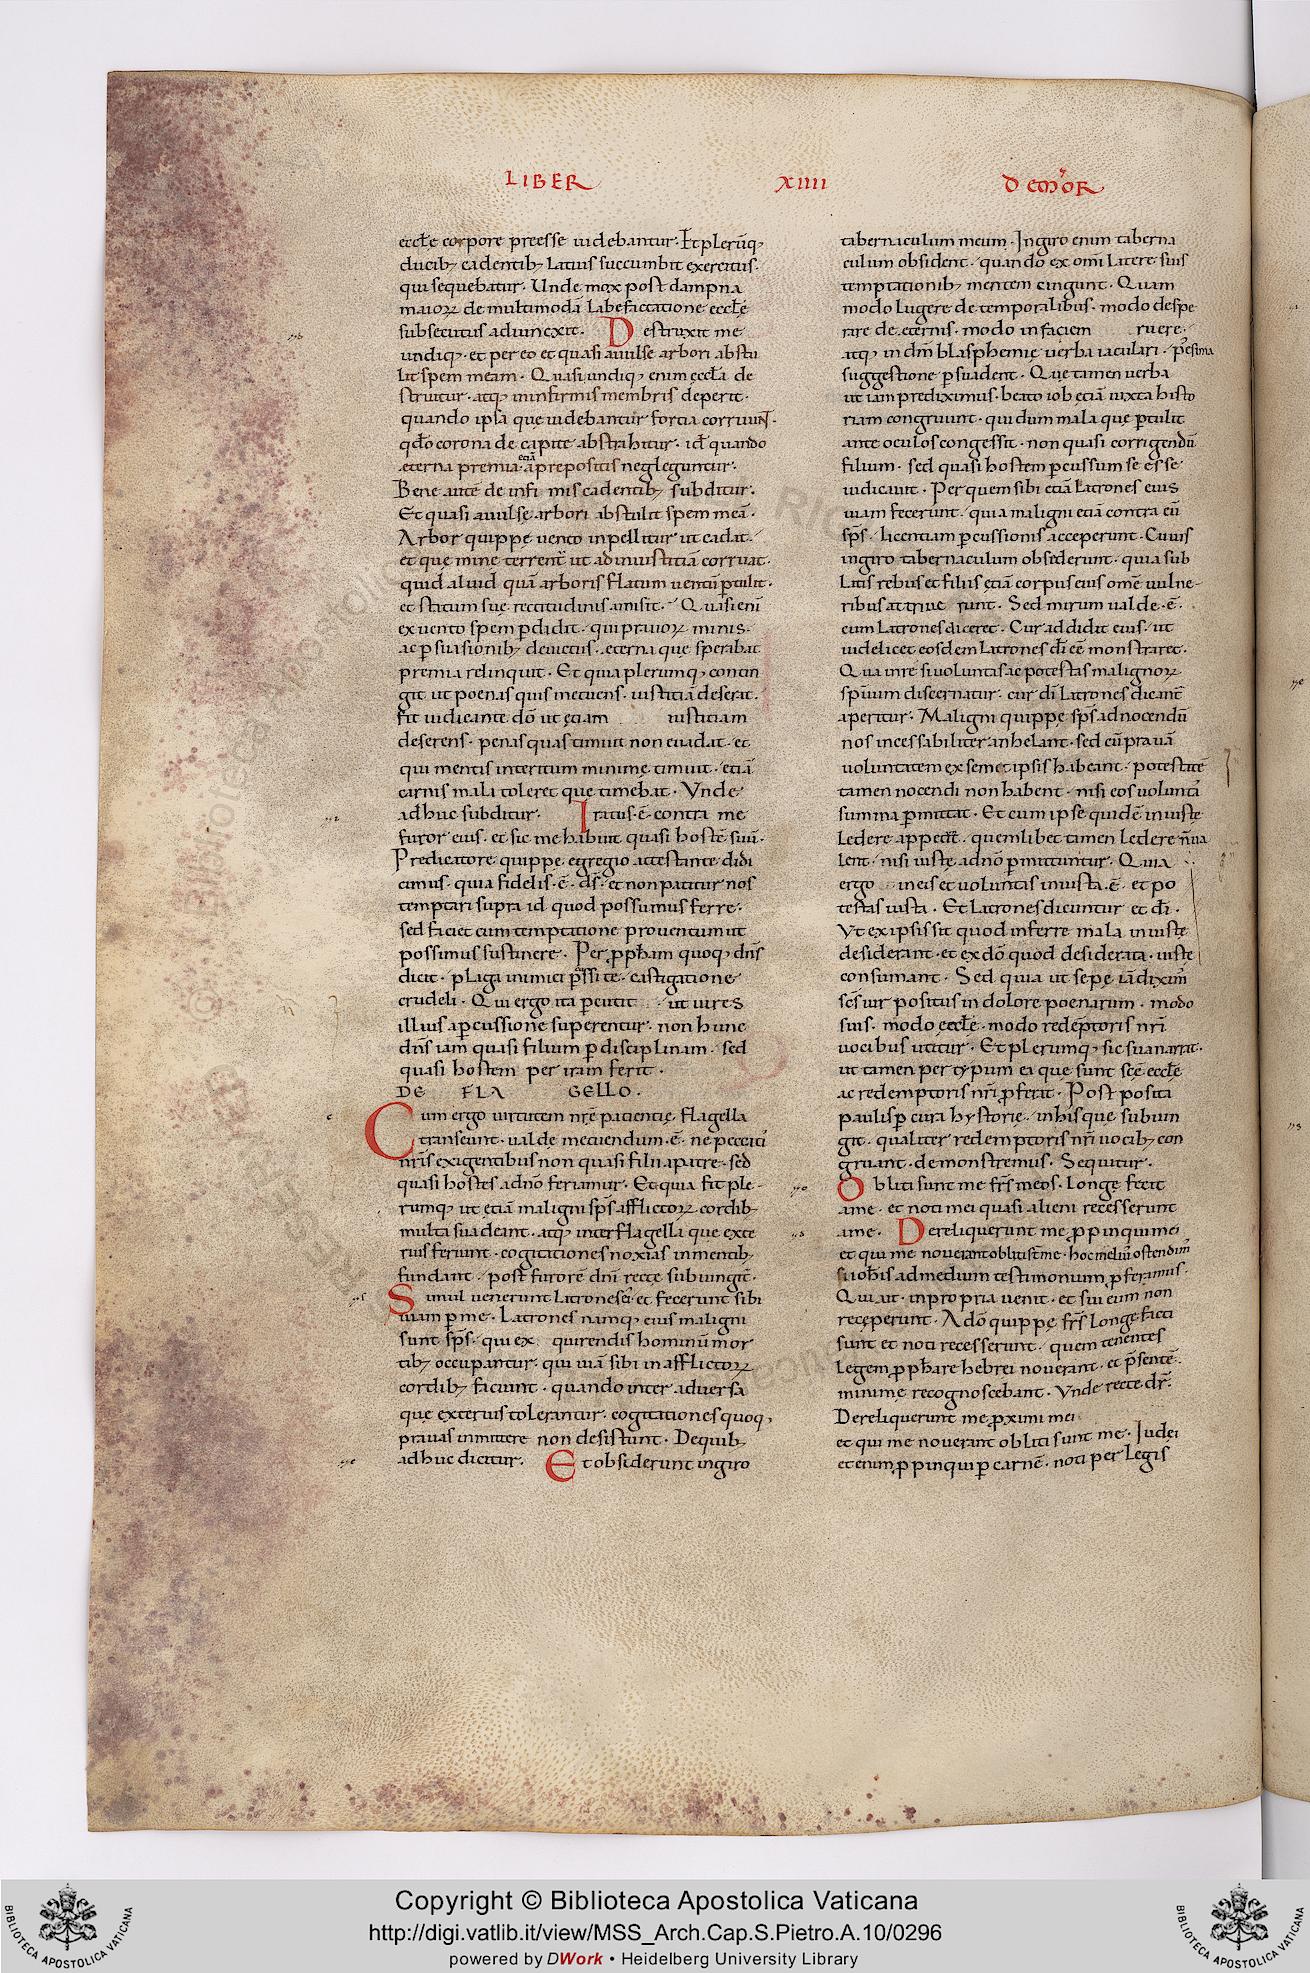 LIBER XIIII D EMOR
eccłe corpore preesse uidebantur. Et plerūq;
ducib; cadentib; latius succumbit exercitus.
qui sequebatur. Unde mox post dampna
maiorꝝ de multimodā labefactatione eccłe
subsecutus adiuncxit. Destruxit me
undiq; et per eo et quasi auulse arbori abstu
lit spem meam. Quasi undiq; enim ęccła de
struitur. atq; in infirmis membris deperit.
quando ipsa quę uidebantur fortia corruunt.
qđo corona de capite abstrahitur. id quando
ęterna premia etiā a prepositis negleguntur.
Bene autē de infi mis cadentib; subditur.
Et quasi auulsę arbori abstulit spem meā.
Arbor quippę uento inpellitur ut cadat.
et quę minę terrent ut ad iniustitiā corruat.
quid aliud quā arboris flatum uenti ꝑtulit.
et statum suę rectitudinis amisit. Quasi eni
ex uento spem ꝑdidit. qui prauorꝝ minis.
ac ꝑsuasionib; deuictus. ęterna quę sperabat
premia relinquit. Et quia plerumq; contin
git ut poenas quis metuens. iustitiā deserat.
fit iudicante dō ut ęciam iustitiam
deserens. penas quas timuit non euadat. et
qui mentis interitum minimę timuit. etiā
carnis mala toleret que timebat. Vnde
adhuc subditur. Iratus. ē. contra me
furor eius. et sic me habuit quasi hostē suū.
Predicatore quippe egregio attestante didi
cimus. quia fidelis. ē. ds̄. et non patitur nos
temptari supra id quod possumus ferre.
sed faciet cum temptatione prouentum ut
possimus sustinere. Per ꝓpħam quoq; dn̄s
dicit. plaga inimici ꝑcussi te. castigatione
crudeli. Qui ergo ita ꝑcutit ut uires
illius a ꝑcussione superentur. non hunc
dn̄s iam quasi filium ꝑ disciplinam. sed
quasi hostem per iram ferit.
DE FLA GELLO.
Cum ergo uirtutem nr̄ę patientię flagella
transeunt. ualde metuendum. ē. ne peccatis
nr̄is exigentibus non quasi filii a patre. sed
quasi hostes a dn̄o feriamur. Et quia fit ple-
rumq; ut etiā maligni sp̄s afflictorꝝ cordib;
multa suadeant. atq; inter flagella que exte
rius feriunt. cogitationes noxias in mentib;
fundant. post furorē dn̄i recte subiungit.
Simul uenerunt latrones ei et fecerunt sibi
uiam ꝑ me. Latrones namq; eius maligni
sunt sp̄s. qui ex quirendis hominum mor
tib; occupantur. qui uiā sibi in afflictorꝝ
cordib; faciunt. quando inter aduersa
que exterius tolerantur. cogitationes quoq;
prauas inmittere non desistunt. De quib;
adhuc dicitur. Et obsiderunt in giro
tabernaculum meum. In giro enim taberna
culum obsident. quando ex omī latere suis
temptationib; mentem cingunt. Quam
modo lugere de temporalibus. modo despe
rare de ęternis. modo in faciem ruere.
atq; in dm̄ blasphemię uerba iaculari. pessima
suggestione ꝑsuadent. Quę tamen uerba
ut iam prediximus. beato iob ętiā iuxta histo
riam congruunt. qui dum mala que ꝑtulit
ante oculos congessit. non quasi corrigendū
filium. sed quasi hostem ꝑcussum se esse
iudicauit. Per quem sibi etiā latrones eius
uiam fecerunt. quia maligni etiā contra eū
sp̄s. licentiam ꝑcussionis acceperunt. Cuius
in giro tabernaculum obsederunt. quia sub
latis rebus et filiis ętiā corpus eius omē uulne-
ribus attriue runt. Sed mirum ualde. ē.
cum latrones diceret. Cur addidit eius. ut
uidelicet eosdem latrones dī ēē monstraret.
Qua in re si uoluntas ac potestas malignorꝝ
spirituum discernatur. cur dī latrones dicant̄
aperitur. Maligni quippę sp̄s ad nocendū
nos incessabiliter anhelant. sed cū prauā
uoluntatem ex semet ipsis habeant. potestatē
tamen nocendi non habent. nisi eos uoluntas
summa ꝑmittat. Et cum ipse quidē iniuste
ledere appetunt. quemlibet tamen ledere n̄ ua
lent. nisi iustę a dn̄o ꝑmittuntur. Quia
ergo in eis et uoluntas iniusta. ē. et po
testas iusta. Et latrones dicuntur et dī.
Vt ex ipsis sit quod inferre mala iniuste
desiderant. et ex dō quod desiderata. iuste
consumant. Sed quia ut sepe iā diximus
sc̄s uir positus in dolore poenarum. modo
suis. modo ęccłe. modo redēptoris nr̄i
uocibus utitur. Et plerumq; sic sua narrat.
ut tamen per typum ea que sunt sc̄ę eccłe
ac redemptoris nr̄i ꝓferat. Post posita
paulisꝑ cura hystorię. in his que subiun
git. qualiter redemptoris nr̄i uocib; con
gruant. demonstremus. Sequitur.
Obliti sunt me fr̄s meos. Longe fecit
a me. et noti mei quasi alieni recesserunt
a me. Dereliquerunt me ꝓpinqui mei
et qui me nouerant obliti st̄ me. hoc melius ostendim̄
si iohīs ad medium testimonium ꝓferamus.
Qui ait. in propria uenit. et sui eum non
receperunt. A dō quippę fr̄s longe facti
sunt et noti recesserunt. quem tenentes
legem ꝓphare hebrei nouerant. et p̄sentē.
minime recognoscebant. Vnde recte dr̄.
Dereliquerunt me ꝓximi mei
et qui me nouerant obliti sunt me. Iudei
etenim ꝓpinqui ꝑ carnē. noti per legis
Copyright © Biblioteca Apostolica Vaticana
http://digi.vatlib.it/view/MSS_Arch.Cap.S.Pietro.A.10/0296
powered by DWork • Heidelberg University Library
BIBLIOTECA APOSTOLICA VATICANA
BIBLIOTECA APOSTOLICA VATICANA